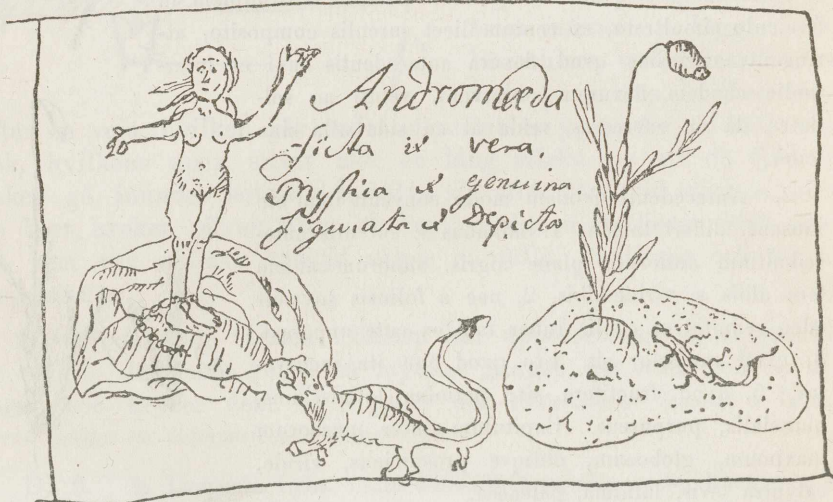 Andromeda
ficta et vera
mystica et genuina
figurata et depicta